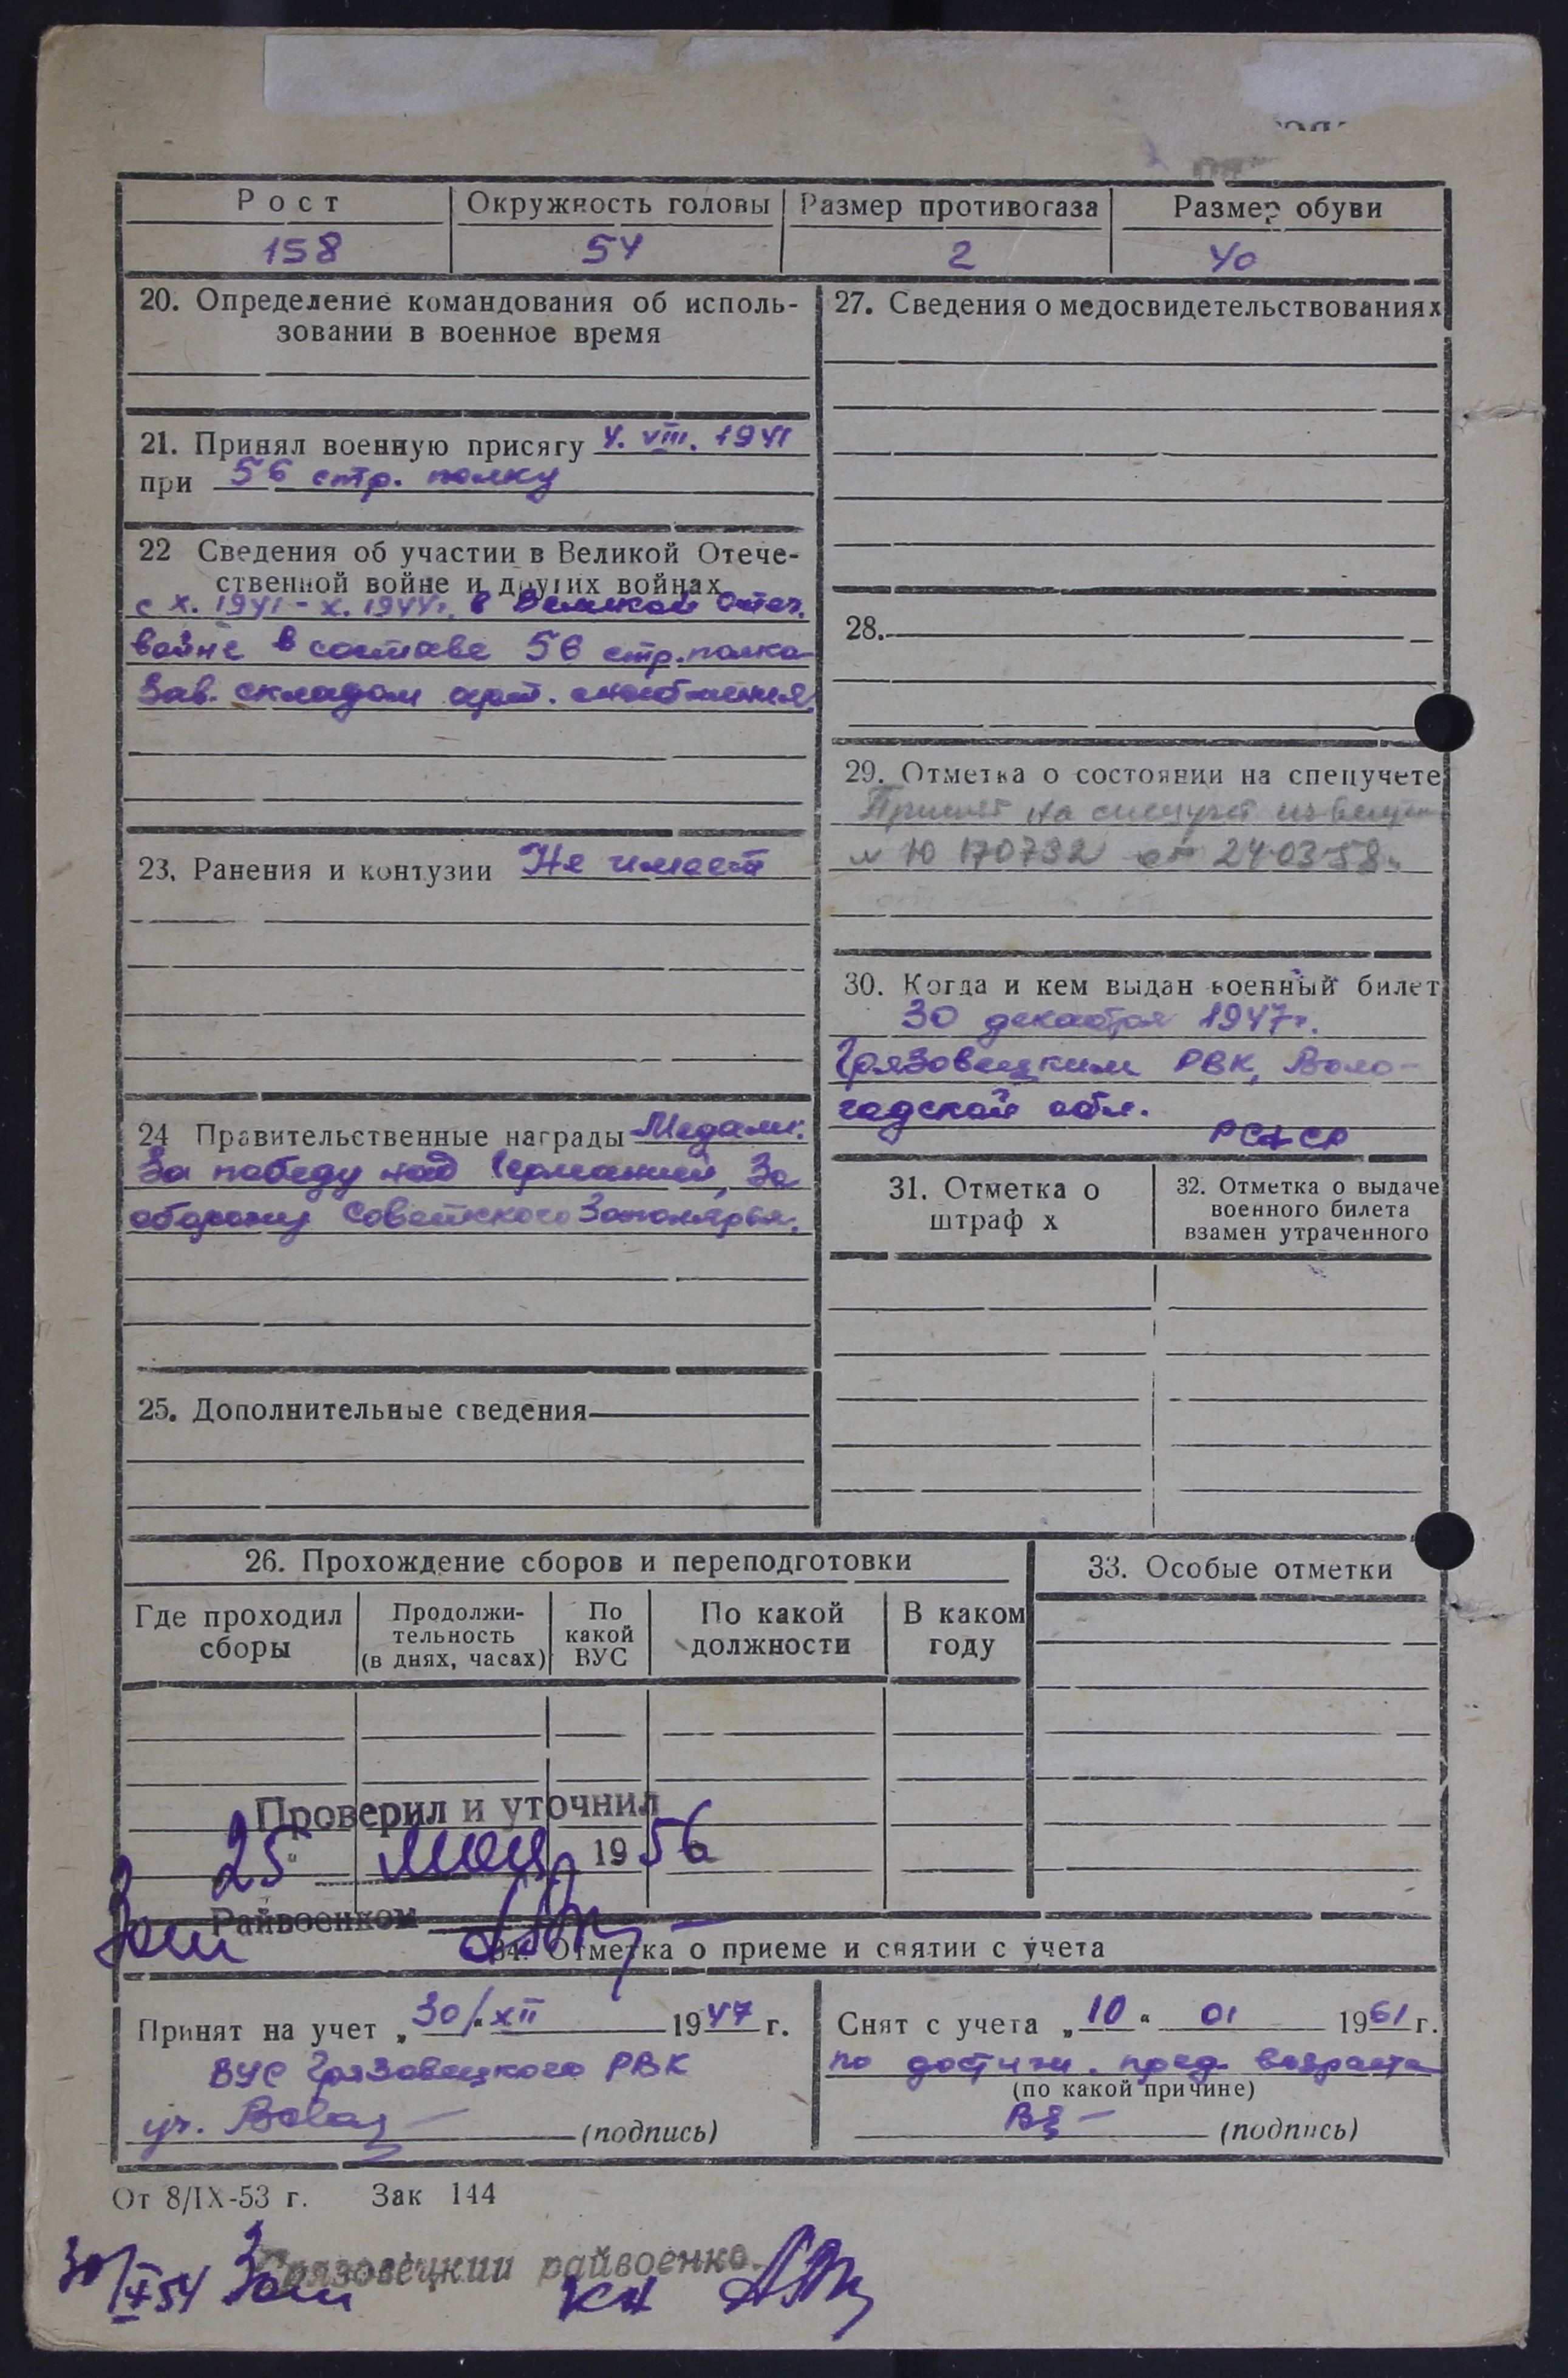 Рост
Окружность головы
Размер противогаза
Размер обуви
158
54
2
40
20. Определение командования об исполь-
зовании в военное время
21. Принял военную присягу 4. VIII. 1941
при 56 стр. полку
22 Сведения об участии в Великой Отече-
ственной войне и других войнах
с X. 1941 - X. 1944г. в Великой Отеч.
войне в составе 56 стр. полка
Зав. складом арт. снабжения.
23. Ранения и контузии Не имеет
24 Правительственные награды Медали:
За победу над Германией, За
оборону Советского Заполярья.
25. Дополнительные сведения
27. Сведения о медосвидетельствованиях
28.
29. Отметка о состоянии на спецучете
Принят на спецучет
№ Ю 170732 от 24.03.58г.
30. Когда и кем выдан военный билет
30 декабря 1947г.
Грязовецким РВК, Воло-
годской обл.
РСФСР
31. Отметка о
штраф х
32. Отметка о выдаче
военного билета
взамен утраченного
26. Прохождение сборов и переподготовки
Где проходил
сборы
Продолжи-
тельность
(в днях, часах)
По
какой
ВУС
По какой
должности
В каком
году
33. Особые отметки
Проверил и уточнил
25 " мая 1956
Зам Райвоенком
34. Отметка о приеме и снятии с учета
Принят на учет „30/" XII 1947 г.
ВУС Грязовецкого РВК
(подпись)
Снят с учета „10" 01 1961 г.
по достиж. пред. возраста
(по какой причине)
(подпись)
От 8/IX-53 г. Зак 144
30/IX 54 Зам Грязовецкий райвоенко